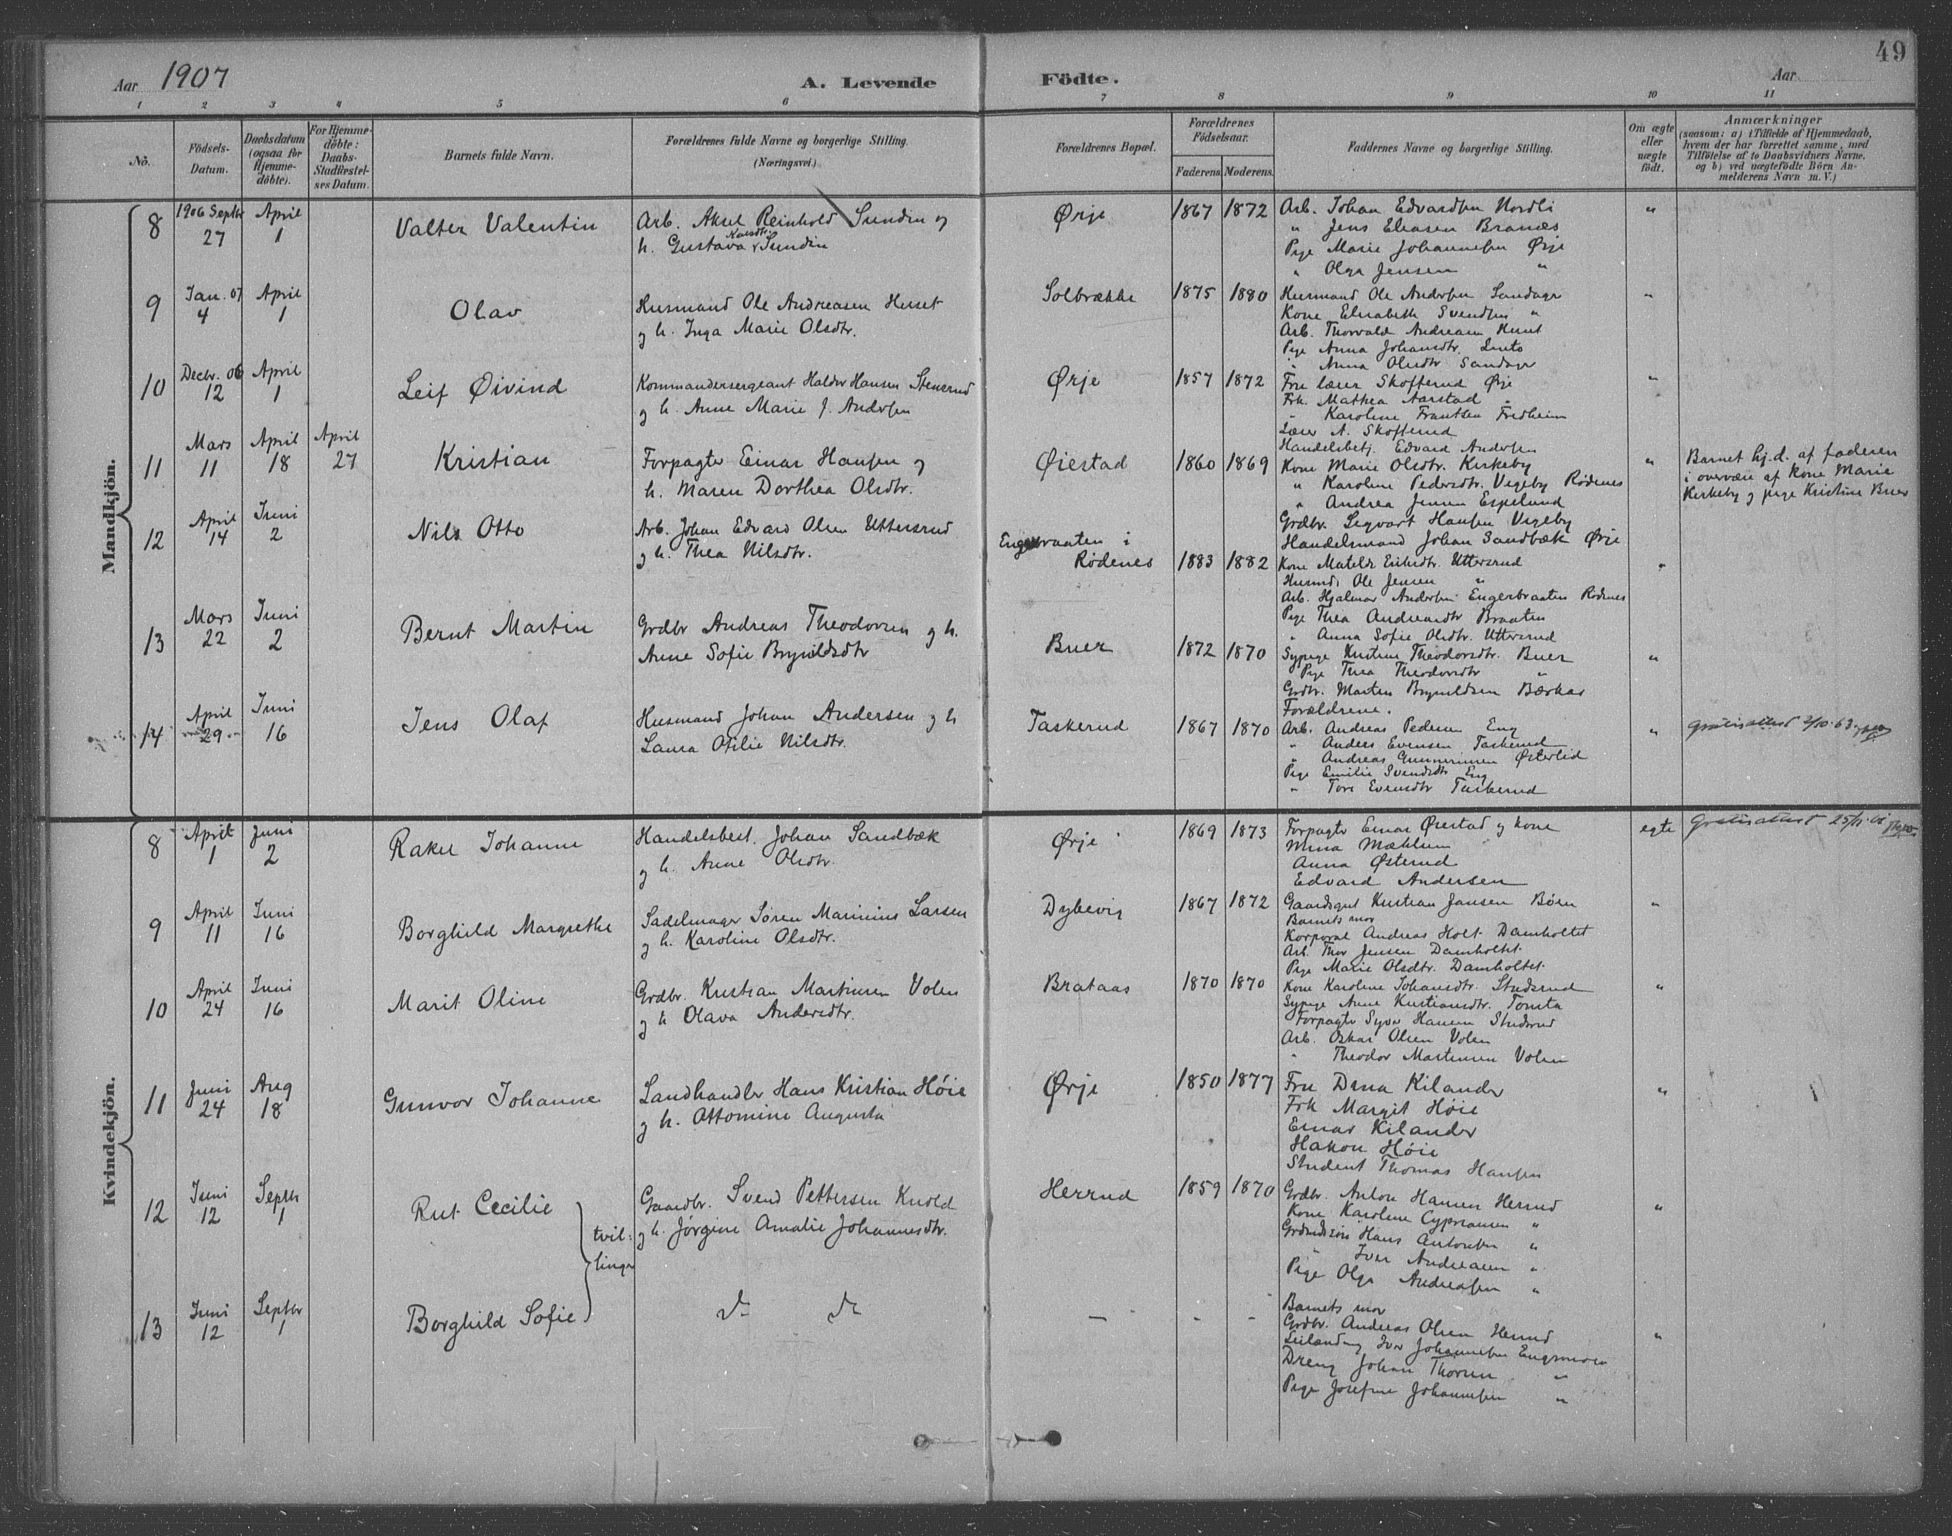 49
Aar 1907
A. Levende Födte.
Aar
1 2 3 4 5 6 7 8 9 10 11
No.
Födsels-
Datum.
Daabsdatum
(ogsaa for
Hjemme-
döbte).
For Hjemme-
döbte:
Daabs-
Stadfæstel-
ses Datum.
Barnets fulde Navn.
Forældrenes fulde Navne og borgerlige Stilling.
(Næringsvei.)
Forældrenes Bopæl.
Forældrenes
Födselsaar.
Faderens. Moderens.
Faddernes Navne og borgerlige Stilling.
Om ægte
eller
uægte
födt.
Anmærkninger
(saasom: a) i Tilfælde af Hjemmedaab,
hvem der har forrettet samme, med
Tilföielse af to Daabsvidners Navne,
og b) ved uægtefödte Börn An-
melderens Navn m. V.)
Mandkjön.
8
1906 Septbr
27
April
1
Valter Valentin
Arb. Aksel Reinhold Sundin og
h. Gustava Karsdtr Sundin
Ørje
1867 1872
Arb. Johan Edvardsen Nordli
" Jens Eliasen Branæs
Pige Marie Johannesen Ørje
" Olga Jensen "
"
9
Jan. 07
4
April
1
Olav
Husmand Ole Andreasen Huset
og h. Inga Marie Olsdtr.
Solbrække
1875 1880
Husmand Ole Andersen Sandager
Kone Elisabeth Svendsen "
Arb. Thorvald Andreasen Huset
Pige Anna Johansdtr.
" Anna Olsdtr Sandager
"
10
Decbr. 06
12
April
1
Leif Øivind
Kommandersergeant Haldor Hansen Stensrud
og h. Anne Marie J. Andersen
Ørje
1857 1872
Fru lærer Skofterud Ørje
Frk. Mathea Aarstad "
" Karoline Frantsen Fredheim
Lærer A. Skofterud
Handelsbetj. Edvard Andersen
"
11
Mars
11
April
18
April
27
Kristian
Forpagter Einar Hansen og
h. Maren Dorthea Olsdtr.
Øiestad
1860 1869
Kone Marie Olsdtr. Kirkeby
" Karoline Pedersdtr. Vigeby Rødenes
" Andrea Jensen Espelund
Grdbr. Sigvart Hansen Vigeby
Handelsmand Johan Sandbæk Ørje
"
Barnet hj.d. af faderen
i overvære af kone Marie
Kirkeby og pige Kristine Buer
12
April
14
Juni
2
Nils Otto
Arb. Johan Edvard Olsen Uttersrud
og h. Thea Nilsdtr.
Engerbraaten i
Rødenes
1883 1882
Kone Matilde Eriksdtr. Uttersrud
Husmd. Ole Jensen "
Arb. Hjalmar Andersen Engerbraaten Rødenes
Pige Thea Andreasdtr Braaten
" Anna Sofie Olsdtr. Uttersrud
"
13
Mars
22
Juni
2
Bernt Martin
Grdbr Andreas Theodorsen og h.
Anne Sofie Brynildsdtr
Buer
1872 1870
Sypige Kristine Theodorsdtr. Buer
Pige Thea Theodorsdtr "
Grdbr. Martin Brynildsen Bærkas
Forældrene.
"
14
April
29
Juni
16
Jens Olaf
Husmand Johan Andersen og h
Laura Otilie Nilsdtr.
Taskerud
1867 1870
Arb. Andreas Pedersen Eng
" Anders Evensen Taskerud
" Andreas Gunnersen Østerlid
Pige Emilie Svendsdtr Eng
" Tore Evensdtr Taskerud
"
Gratisattest 2/10-63
Kvindekjön.
8
April
1
Juni
2
Rakel Johanne
Handelsbest. Johan Sandbæk
og h. Anne Olsdtr.
Ørje
1869 1873
Forpagter Einar Øiestad og kone
Mina Mæhlum
Anna Østerud
Edvard Andersen
egte
Gratisattest
9
April
11
Juni
16
Borghild Margrethe
Sadelmager Søren Marinius Larsen
og h. Karoline Olsdtr.
Dybevig
1867 1872
Gaardsgut Kristian Jansen Bøen
Barnets mor
Korporal Andreas Holt Damholtet
Arb. Thor Jensen Damholtet.
Pige Marie Olsdtr. Damholtet.
"
10
April
24
Juni
16
Marit Oline
Grdbr. Kristian Martinsen Volen
og h Olava Andersdtr.
Brataas
1870 1870
Kone Karoline Johansdtr. Studsrud
Sypige Anne Kristiansdtr. Tomta
Forpagter Syver Hansen Studsrud
Arb. Oskar Olsen Volen
" Theodor Martinsen Volen
"
11
Juni
24
Aug
18
Gunvor Johanne
Landhandler Hans Kristian Høie
og h. Ottomine Augusta
Ørje
1850 1877
Fru Dina Kilander
Frk Margit Høie
Einar Kilander
Hakon Høie
Student Thomas Hansen
"
12
Juni
12
Septb
1
Rut Cecilie
tvil-
linger
Gaardbr. Svend Pettersen Knold
og h. Jørgine Amalie Johannesdtr.
Herrud
1859 1870
Grdbr. Anton Hansen Herrud
Kone Karoline Cypriansen "
Grdmdssøn Hans Antonsen "
" Iver Andreasen "
Pige Olga Andreasen "
"
13
Juni
12
Septbr
1
Borghild Sofie
do do
— - -
Barnets mor
Grdbr. Andreas Olsen Herrud
Leilænding Iver Johannesen Engsmoen
Dreng Johan Thorsen "
Pige Josefine Johannesen "
"